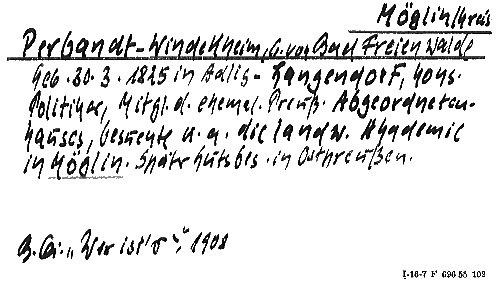 Möglin/Kreis
Perbandt-Windekheim, C. von Bad Freienwalde
Geb. 30. 3. 1825 in Adlig-Langendorf, kons.
Politiker, Mitgl. d. ehemal. Preuß. Abgeordneten-
hauses, besuchte u. a. die landw. Akademie
in Möglin. Später Gutsbes. in Ostpreußen.
B. Gi. „Wer ist's", 1908
I-16-7 F 696 55 102